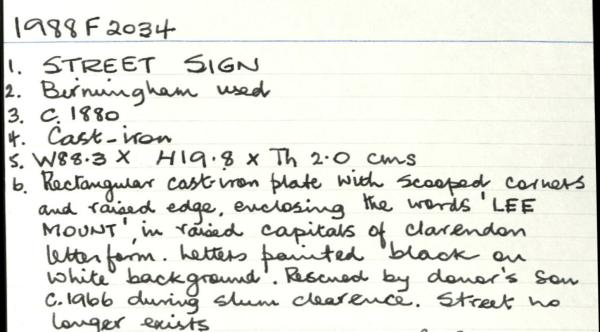 1988 F 2034
1. STREET SIGN
2. Birmingham used
3. C. 1880
4. Cast-iron
5. W88.3 x H19.8 x Th 2.0 cms
6. Rectangular cast-iron plate with scooped corners
and raised edge, enclosing the words 'LEE
MOUNT', in raised capitals of clarendon
letterform. Letters painted black on
white background. Rescued by donor's son
c.1966 during slum clearence. Street no
longer exists